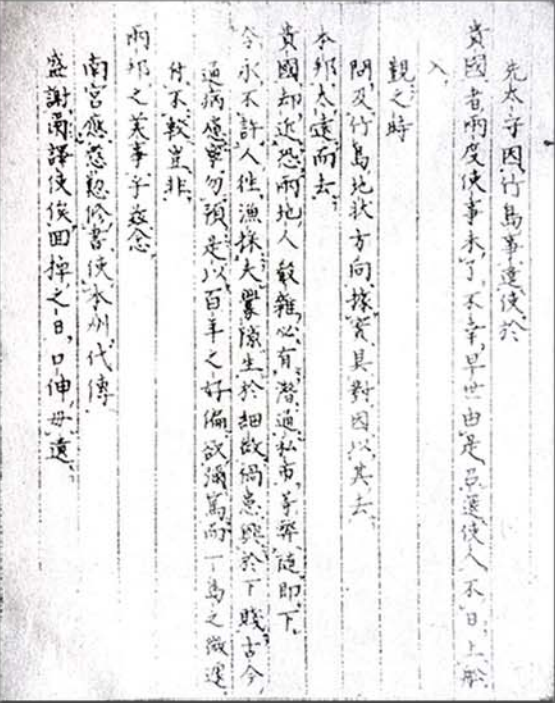 先太守因竹島事遣使於
貴國者兩度使事未了、不幸、早世由是召還使人不日、上船
入、
覲之時
問及竹島地狀方向據實具對因以其去
本邦太遠而去
貴國却近恐兩地人殽雜必有潛通私市、等弊隨即、下、
令永不許人往漁採夫釁隙生於細故禍患興於下賤古今
通病慮寧勿預是以百年之好偏欲彌篤而一島之微遽
付不較豈非、
兩邦之美事乎茲念
南宮應慇懃修書使本州代傳
盛謝兩譯使俟回棹之日、口伸毋遺